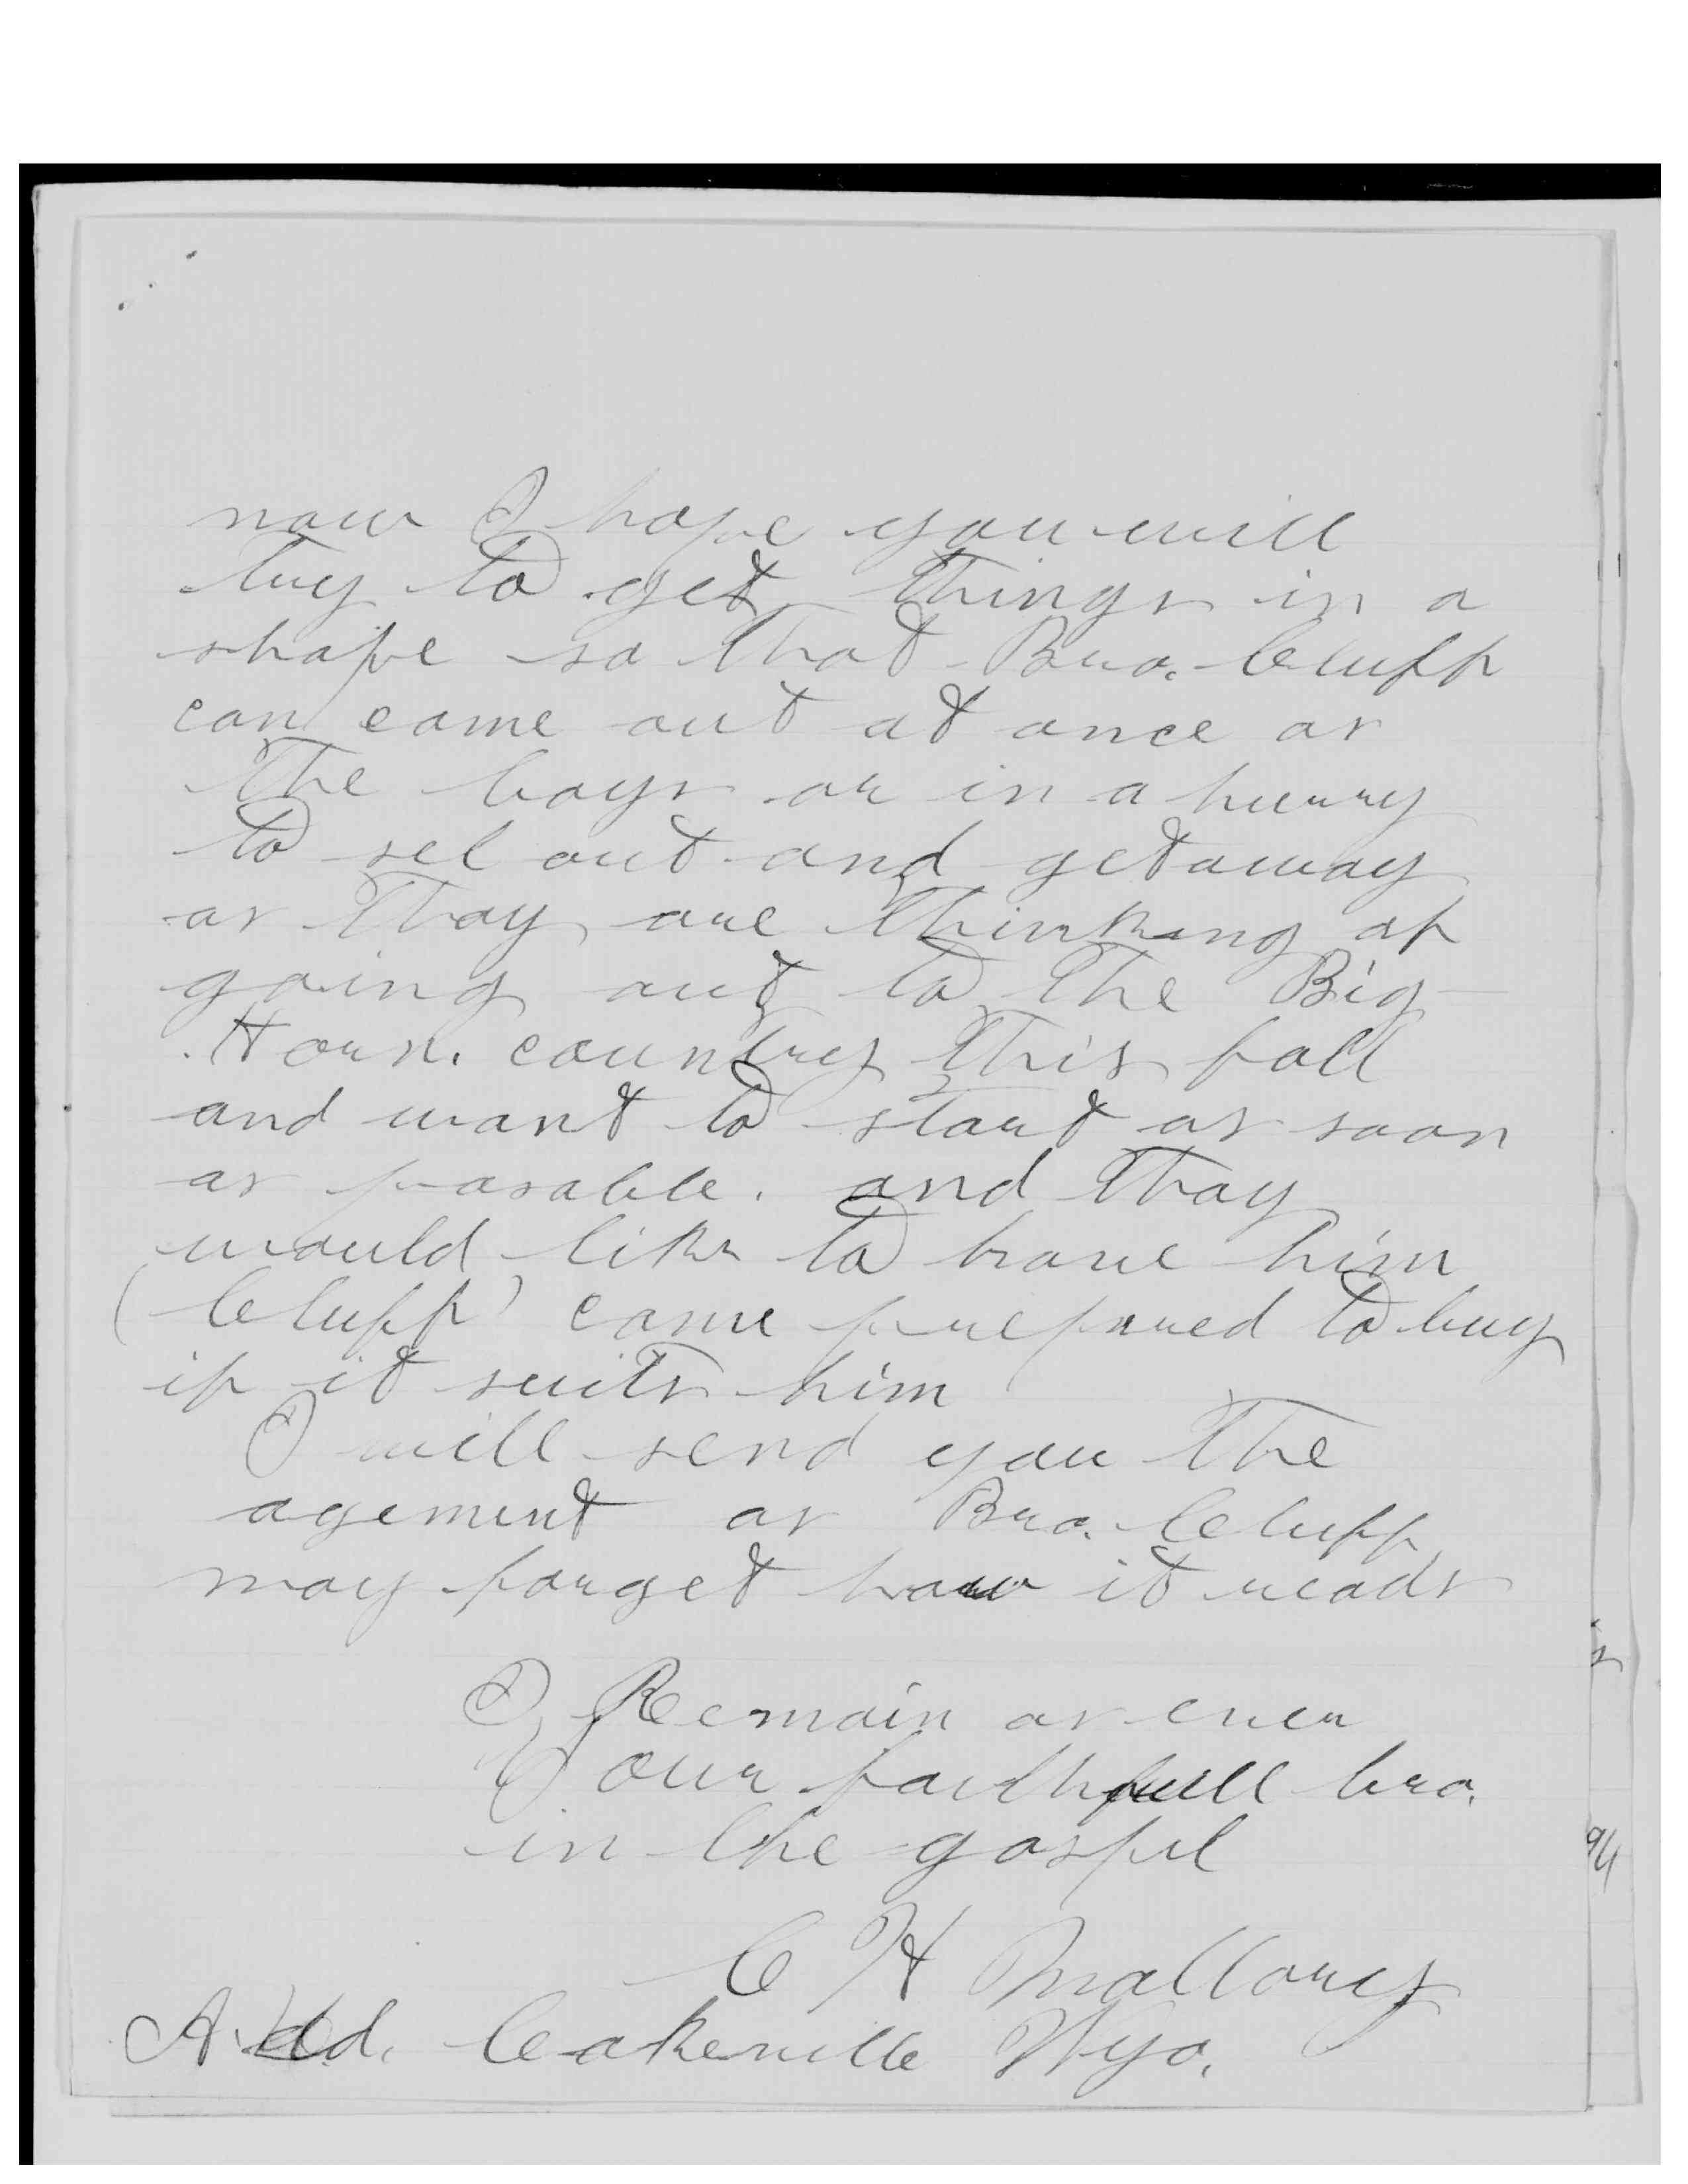 now I hope you will
try to get things in a
shape so that Bro. Cluff
can come out at once as
the boys ar in a hurry
to sel out and get away
as thay are thinking of
going out to the Big
Horn. country this fall
and want to start as soon
as posable. and thay
would like to have him
(Cluff) come prepared to buy
if it suits him
I will send you the
agement as Bro. Cluff
may forget how it reads
I Remain as ever
Your faithfull bro.
in the gospel
C H Mallory
Add. Cokeville Wyo.
94